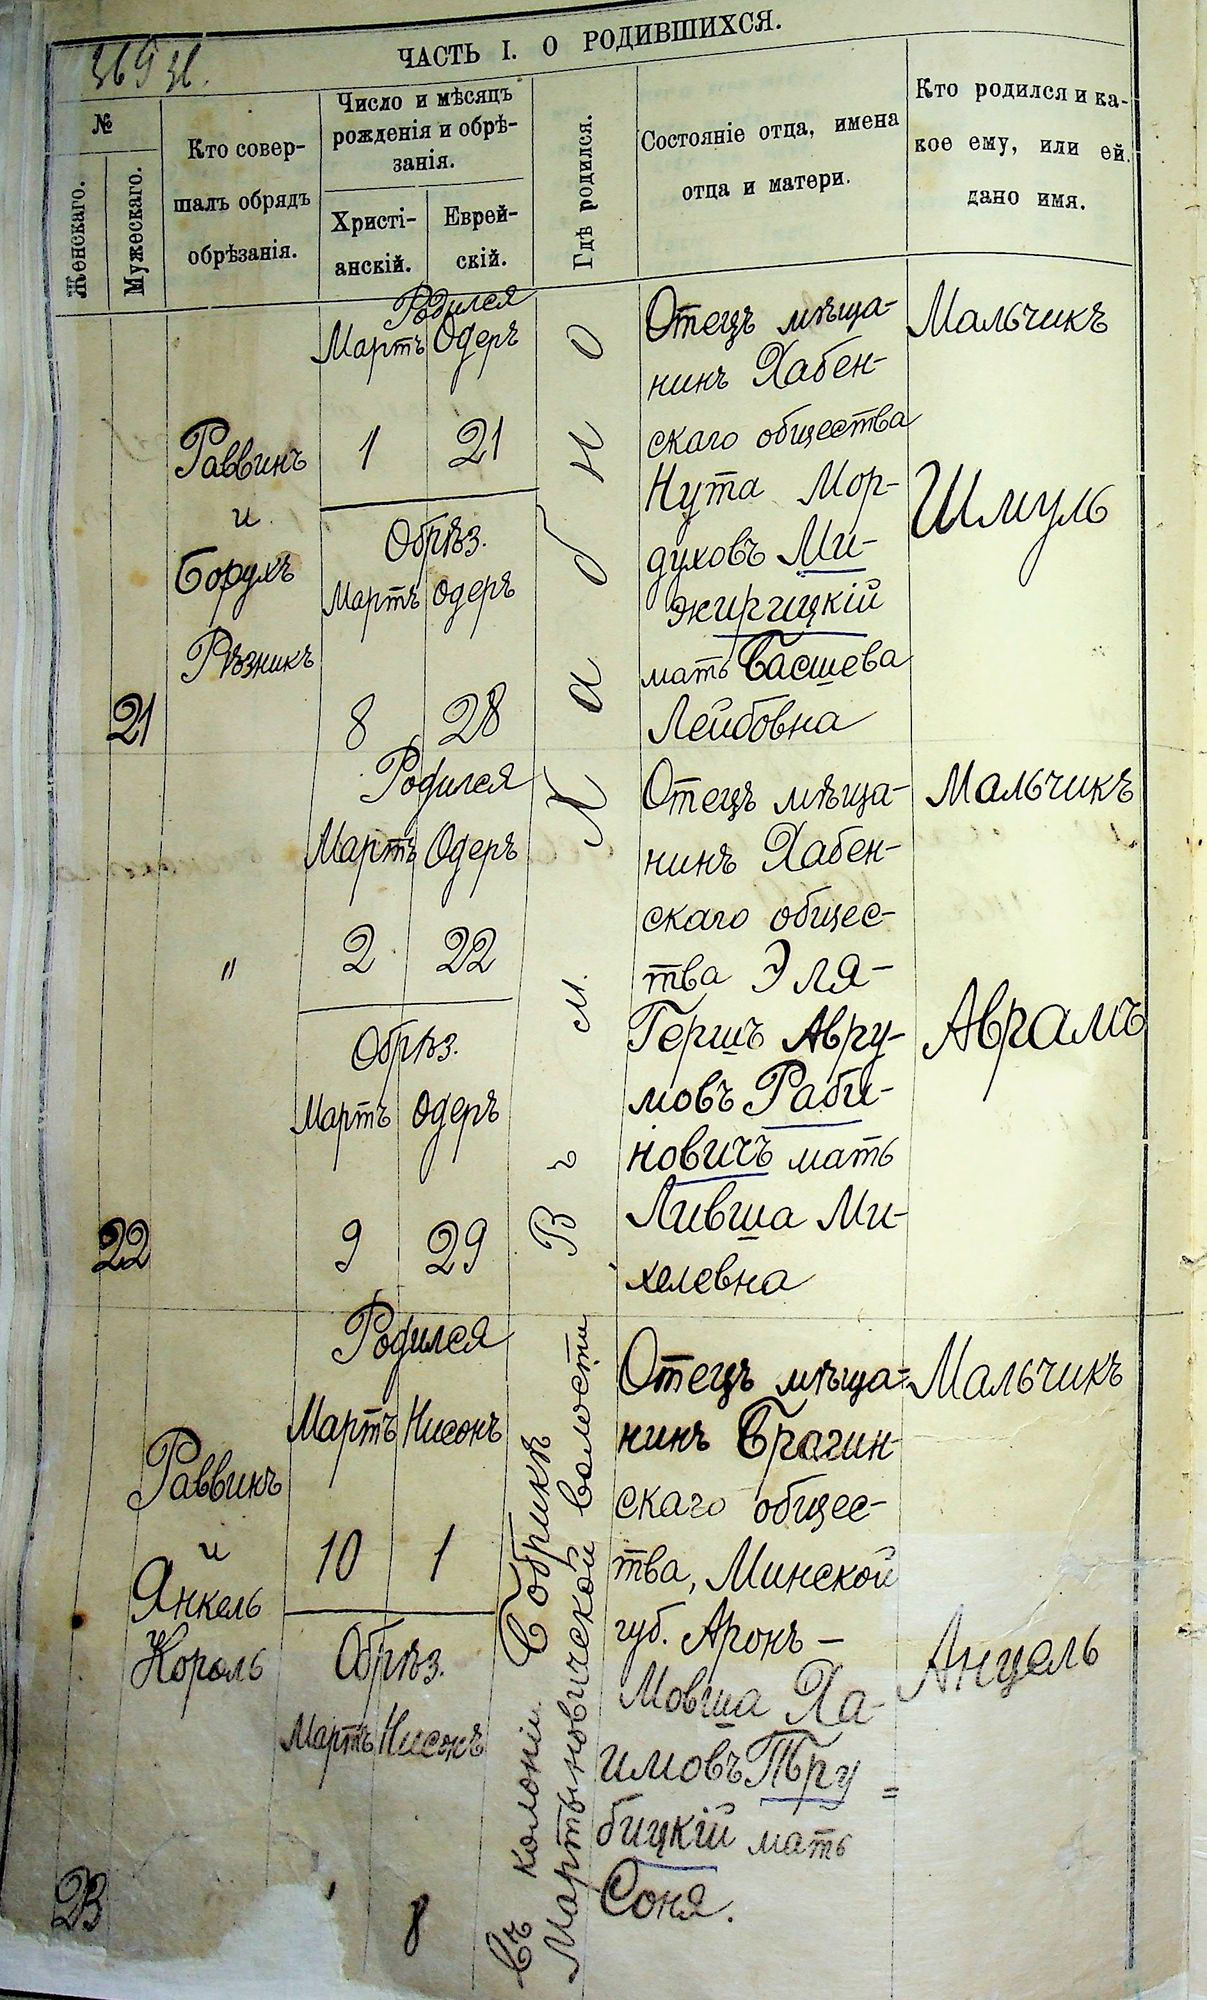 ЧАСТЬ I. О РОДИВШИХСЯ.
№
Женскаго.
Мужескаго.
Кто совер-
шалъ обрядъ
обрѣзанія.
Число и мѣсяцъ
рожденія и обрѣ-
занія.
Христі-
анскій.
Еврей-
скій.
Гдѣ родился.
Состояніе отца, имена
отца и матери.
Кто родился и ка-
кое ему, или ей,
дано имя.
21
Раввинъ
и
Борухъ
Рѣзникъ
Родился
Мартъ Одеръ
1 21
Обрѣз.
Мартъ Одеръ
8 28
Въ м. Хабно
Отецъ мѣща-
нинъ Хабен-
скаго общества
Нута Мор-
духовъ Ми-
жирицкій
мать Басшева
Лейбовна
Мальчикъ
Шмуль
22
"
Родился
Мартъ Одеръ
2 22
Обрѣз.
Мартъ Одеръ
9 29
Отецъ мѣща-
нинъ Хабен-
скаго общес-
тва Эля-
Гершъ Авру-
мовъ Раби-
новичъ мать
Ливша Ми-
хелевна
Мальчикъ
Аврамъ
23
Раввинъ
и
Янкель
Король
Родился
Мартъ Нисонъ
10 1
Обрѣз.
Мартъ Нисонъ
8
Въ колоніи Бобрикѣ
Мартыновической волости
Отецъ мѣща-
нинъ Брагин-
скаго общес-
тва, Минской
губ. Аронъ-
Мовша Ха-
имовъ Тру=
бицкій мать
Соня.
Мальчикъ
Анцель